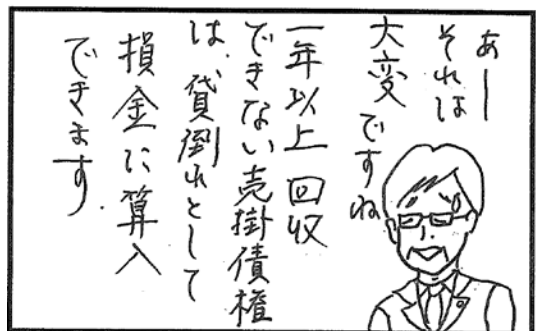 あー
それは
大変ですね
一年以上回収
できない売掛債権
は、貸倒れとして
損金に算入
できます。